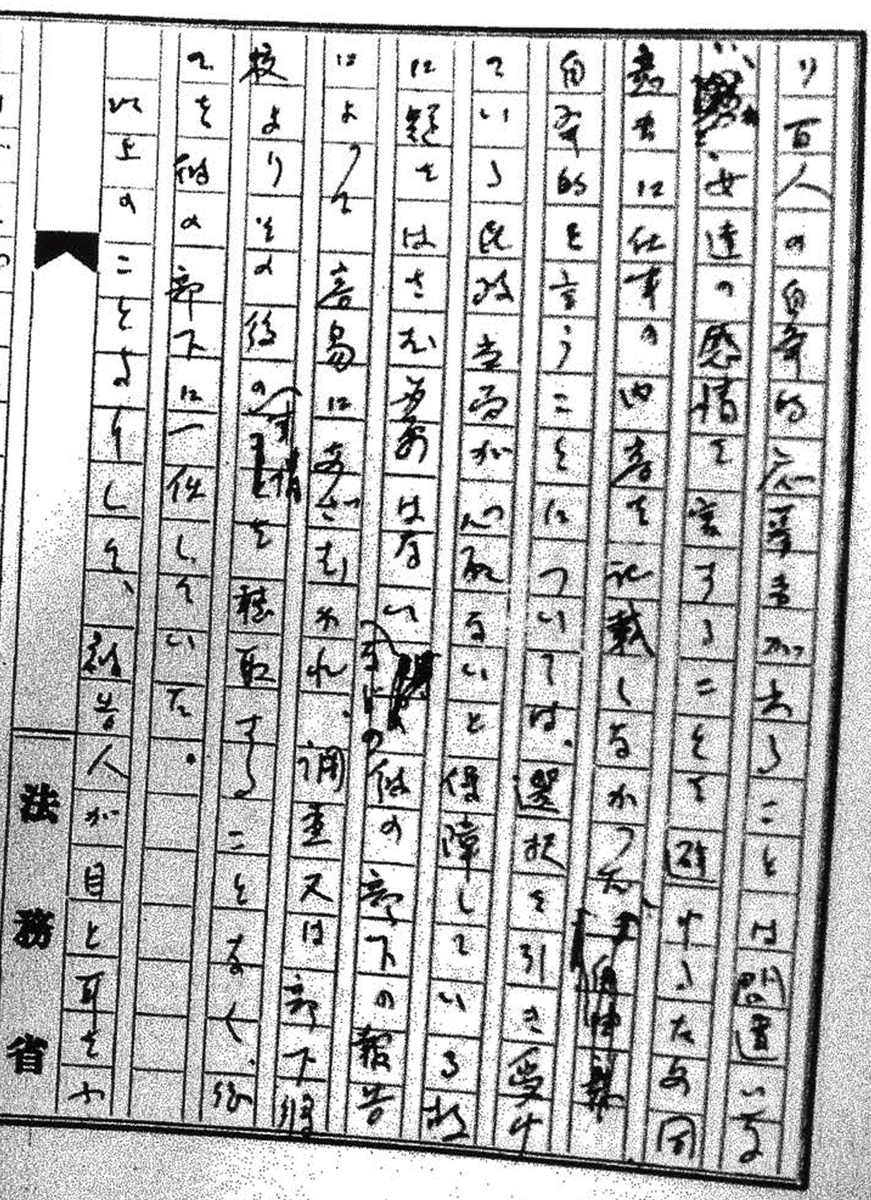 り百人の自発的応募者が出ることは間違いな
い、女達の感情を害することを避けるため同
意書に仕事の内容を記載しなかった
自発的と言うことについては、選択を引き受け
ている民政当局が心配ないと保障している故
に疑をはさむ必要はない 他の部下の報告
によって容易にあざむかれ、調査又は部下将
校よりその後の事情を聴取することなく、後
を他の部下に一任していた。
以上のことよりして、被告人が目と耳をふ
法務省